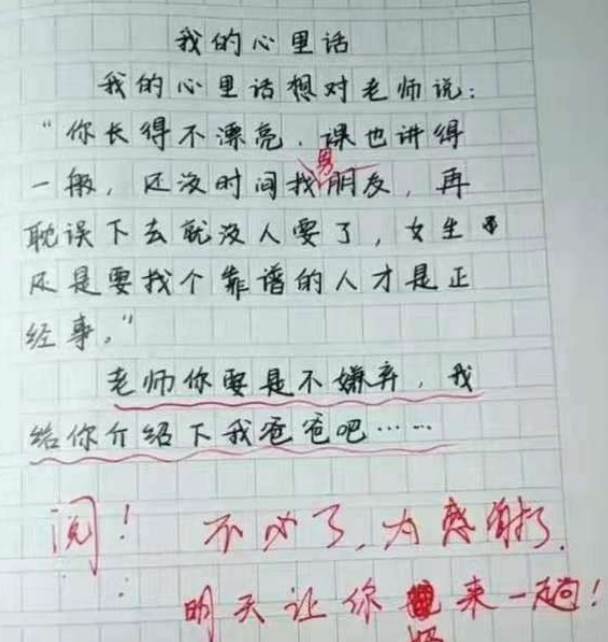 我的心里话
我的心里话想对老师说:
“你长得不漂亮,课也讲得
一般,还没时间找男朋友,再
耽误下去就没人要了,女生
还是要找个靠谱的人才是正
经事。”
老师你要是不嫌弃,我
给你介绍下我爸爸吧……
阅! 不必了,太感谢了,
明天让你 来一趟!
妈